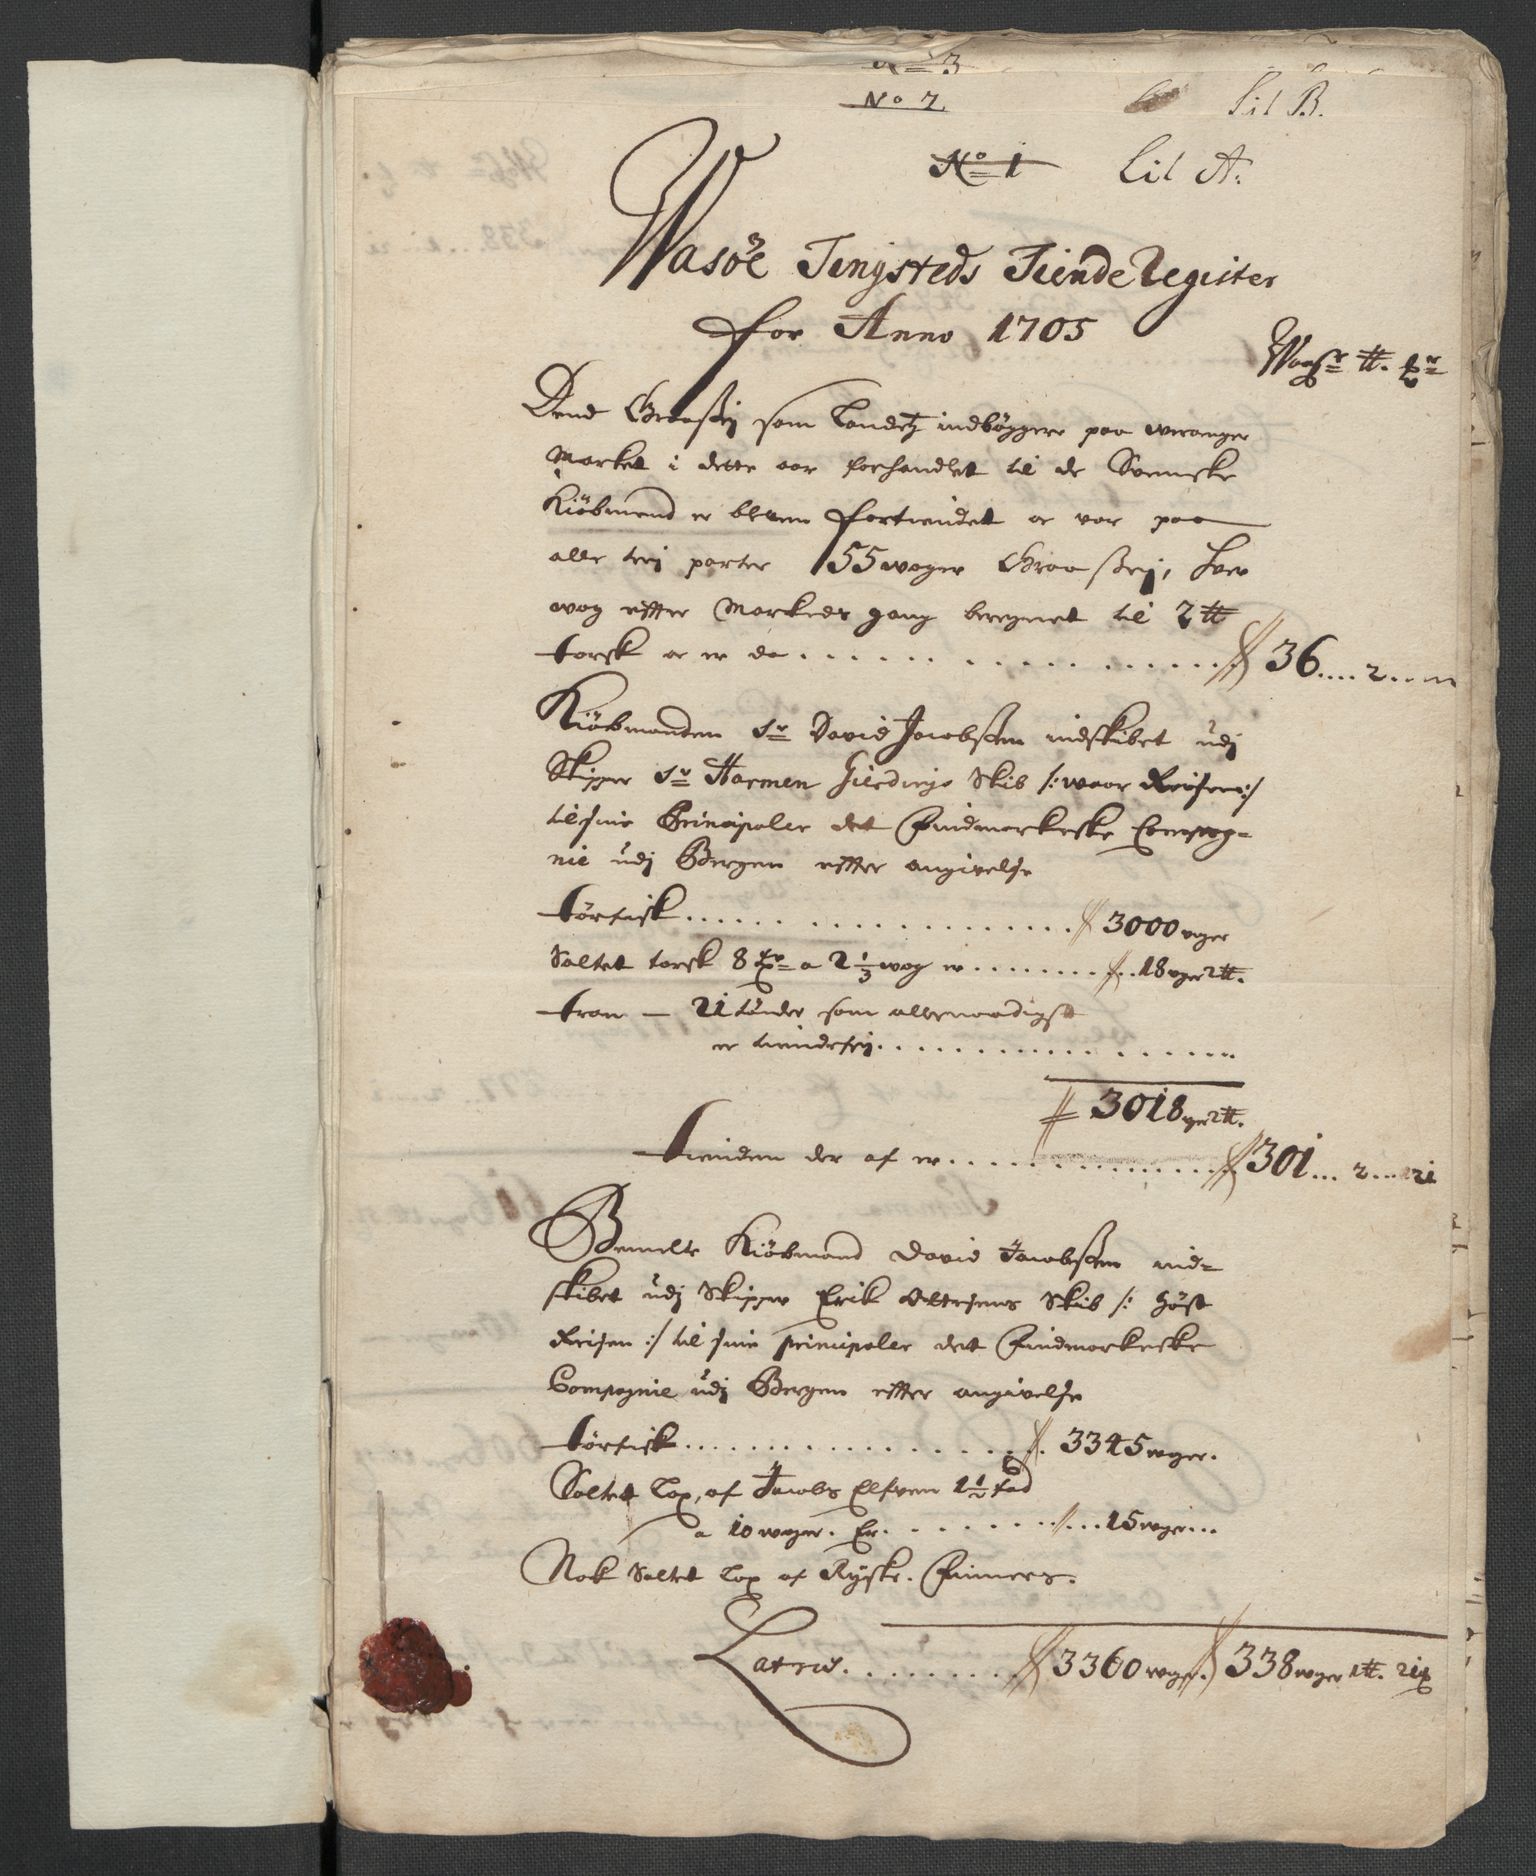 No 3
No 7.
Lit B.
No 1 Lit A:
Wasöe Tingsteds Tiende Register
for Anno 1705
Woger ₶. ℔r
Dend Graasej som Landetz indbÿggere paa Waranger
Marked i dette aar forhandlet til de Svenske
Kiöbmend er bleven fortiendet oc var paa
alle trej parter 155 woger Graa sej, hver
wog effter Markeds gang beregnet til 2 ₶
torsk oc er da 36 2
Kiöbmanden Sr David Jacobsen indskibet udj
Skipper Sr Harmen Skib /: waar Reisen :/
til sine Principaler det Findmarkeske Compag-
nie udj Bergen effter angivelse
törfisk 3000 wger
Saltet torsk 8 a 2 1/3 wog er 18 wger 2 ₶.
tran — 21 tünder som allernaadigst
er tiendefrj
3018 wger 2 ₶.
tienden der af er 301 2 21
Bemelte Kiöbmand David Jacobsen ind-
skibet udj Skipper Erik Skib /: höst
Reisen :/ til sine principaler det Findmarkeske
Compagnie udj Bergen effter angivelse
törfisk 3345 wger.
Saltet Lax, af Jacobs Elfven 1 1/2 fad
a 10 woger. Er 15 woger
Nok Saltet Lax af Rÿske. Finners.
Lateris 3360 wger. 338 wger 1 ₶. 21 ℔